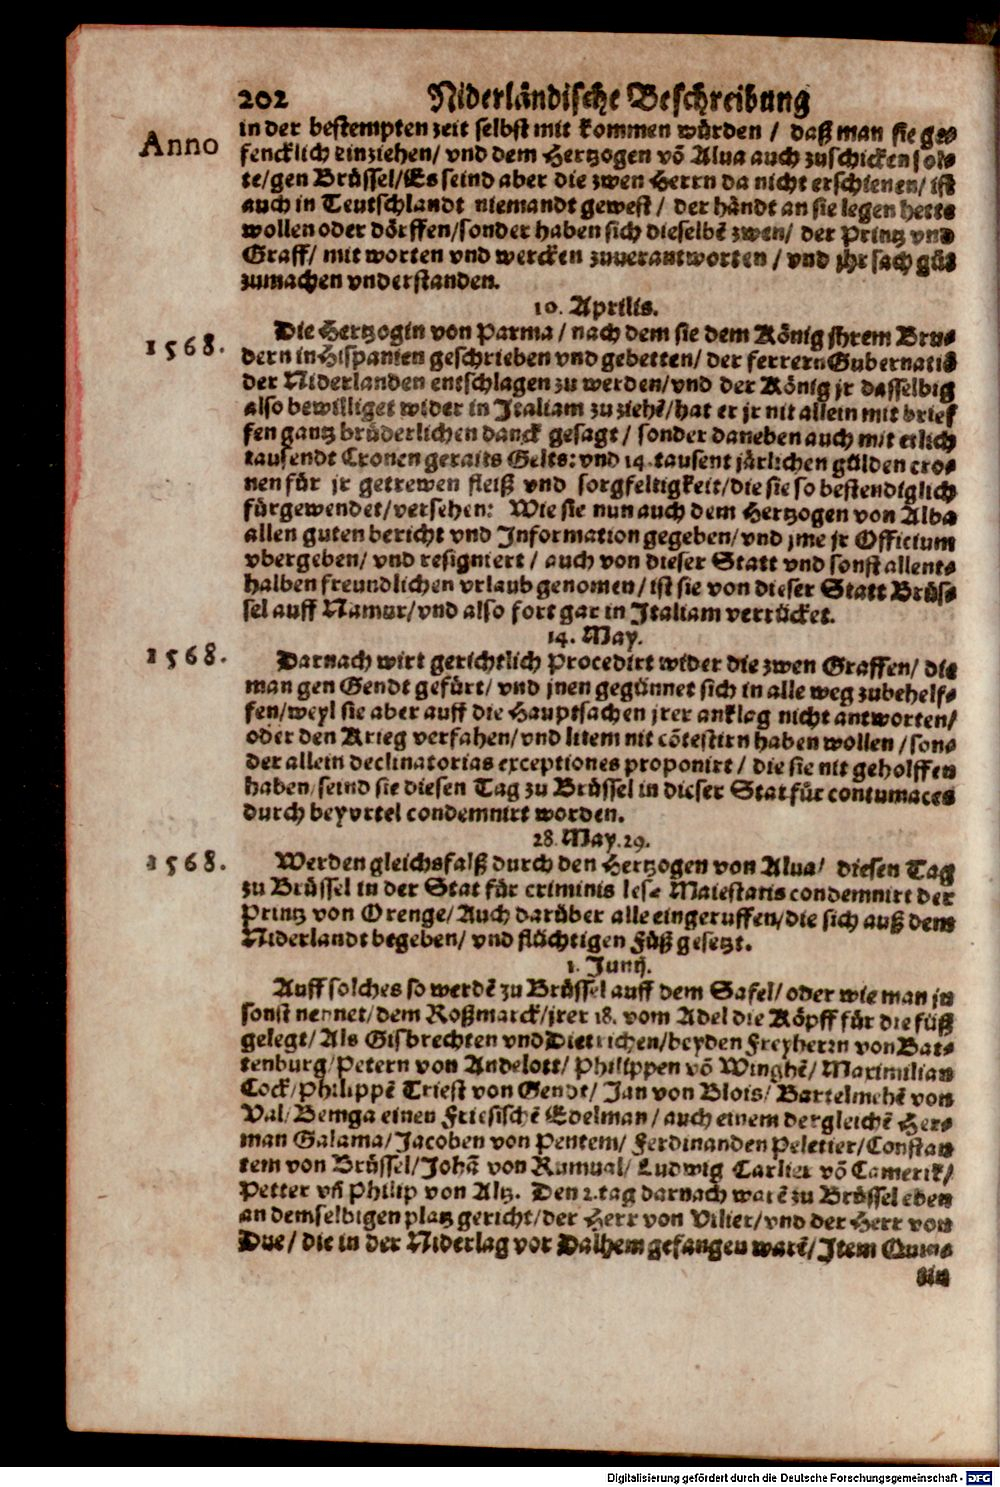 202 Niderländische Beschreibung
Anno
in der bestempten zeit selbst mit kommen würden / daß man sie ge-
fencklich einziehen/ vnd dem Hertzogen võ Alua auch zuschicken sol-
te/gen Brüssel/Es seind aber die zwen Herrn da nicht erschienen/ ist
auch in Teutschlandt niemandt gewest / der händt an sie legen hette
wollen oder dörffen/sonder haben sich dieselbẽ zwen/ der Printz vnd
Graff/ mit worten vnd wercken zuuerantworten / vnd jhr sach gůt
zumachen vnderstanden.
10. Aprilis.
1568.
Die Hertzogin von Parma / nach dem sie dem König jhrem Bru-
dern in Hispanien geschrieben vnd gebetten/ der ferrern Gubernatiõ
der Niderlanden entschlagen zu werden/vnd der König jr dasselbig
also bewilliget wider in Jtaliam zu ziehẽ/hat er jr nit allein mit brief
fen gantz brüderlichen danck gesagt / sonder daneben auch mit etlich
tausendt Cronen geraits Gelts: vnd 14. tausent järlichen gülden cro-
nen für jr getrewen fleiß vnd sorgfeltigkeit/die sie so bestendiglich
fürgewendet/versehen: Wie sie nun auch dem Hertzogen von Alba
allen guten bericht vnd Jnformation gegeben/vnd jme jr Officium
vbergeben/ vnd resigniert / auch von dieser Statt vnd sonst allent-
halben freundlichen vrlaub genomen/ ist sie von dieser Statt Brüs-
sel auff Namur/vnd also fort gar in Jtaliam verrücket.
14. May.
1568.
Darnach wirt gerichtlich Procedirt wider die zwen Graffen/ die
man gen Gendt gefürt/ vnd jnen gegünnet sich in alle weg zubehelf-
fen/weyl sie aber auff die Hauptsachen jrer anklag nicht antworten/
oder den Krieg verfahen/vnd litem nit cõtestirn haben wollen / son-
der allein declinatorias exceptiones proponirt / die sie nit geholffen
haben/ seind sie diesen Tag zu Brüssel in dieser Stat für contumaces
durch beyvrtel condemnirt worden.
28. May. 29.
1568.
Werden gleichsfalß durch den Hertzogen von Alua/ diesen Tag
zu Brüssel in der Stat für criminis lese Maiestatis condemnirt der
Printz von Orenge/Auch darüber alle eingeruffen/die sich auß dem
Niderlandt begeben/ vnd flüchtigen Fůß gesetzt.
1. Junij.
Auff solches so werdẽ zu Brüssel auff dem Safel/ oder wie man jn
sonst nennet/dem Roßmarck/jrer 18. vom Adel die Köpff für die füß
gelegt/ Als Gisbrechten vnd Dietrichen/beyden Freyherrn von Bat-
tenburg/Petern von Andelott/ Philippen võ Winghẽ/ Maximilian
Cock/Philippẽ Triest von Gendt/ Jan von Blois/ Bartelmehẽ von
Val/ Bemga einen Friesischẽ Edelman / auch einem dergleichẽ Her-
man Galama/Jacoben von Pentem/ Ferdinanden Peletier/Constan
tem von Brüssel/Johã von Rumual/ Ludwig Carlier võ Camerik/
Petter vñ Philip von Altz. Den 2. tag darnach warẽ zu Brüssel eben
an demselbigen platz gericht/der Herr von Vilier/vnd der Herr von
Due/ die in der Niderlag vor Dalhem gefangen warẽ/ Jtem Quin-
tin
Digitalisierung gefördert durch die Deutsche Forschungsgemeinschaft - DFG